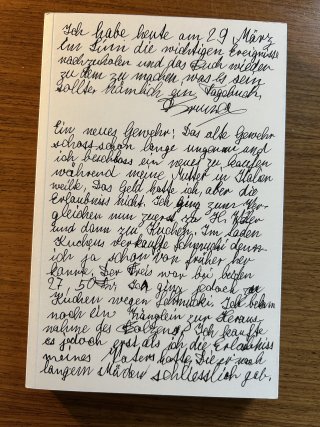 Ich habe heute am 29 März
im Sinn die wichtigen Ereignisse
nachzuholen und das Buch wieder
zu dem zu machen, was es sein
sollte nämlich ein Tagebuch.
Ein neues Gewehr! Das alte Gewehr
schoss schon lange ungenau und
ich beschloss ein neues zu kaufen
während meine Mutter in Italien
weilte. Das Geld hatte ich, aber die
Erlaubniss nicht. Ich ging zum Ver-
gleichen nun zuerst zu H.
und dann zu Kuchen. Im Laden
Kuchens verkaufte Schmucki den
ich ja schon von früher her
kannte. Der Preis war bei beiden
27,50 Fr. Ich ging jedoch zu
Kuchen wegen Schmucki. Ich bekam
noch ein Zänglein zur Heraus-
nahme des Bolzens. Ich kaufte
es jedoch erst als ich die Erlaubniss
meines Vaters hatte. Die er nach
langem schliesslich gab.